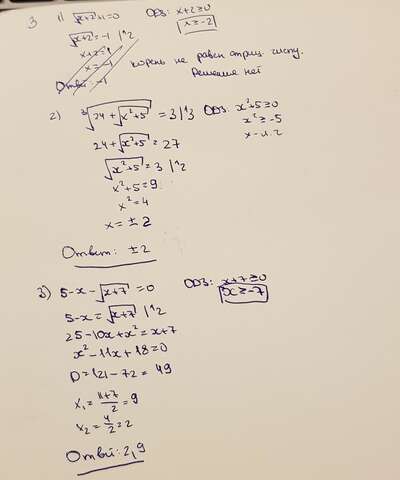 3 1) √x+2+1=0 ОДЗ: x+2≥0
√x+2 = -1 |^2 x≥-2
x+2=1
x=-1 корень не равен отриц. числу.
Ответ: -1 Решение нет
2) ³√24+√x²+5 = 3 |^3 ОДЗ: x²+5≥0
24+√x²+5 = 27 x²≥-5
√x²+5 = 3 |^2 x-л.ч.
x²+5=9
x²=4
x=±2
Ответ: ±2
3) 5-x-√x+7 =0 ОДЗ: x+7≥0
5-x=√x+7 |^2 x≥-7
25-10x+x²=x+7
x²-11x+18=0
D=121-72=49
x₁=11+7/2=9
x₂=4/2=2
Ответ: 2,9